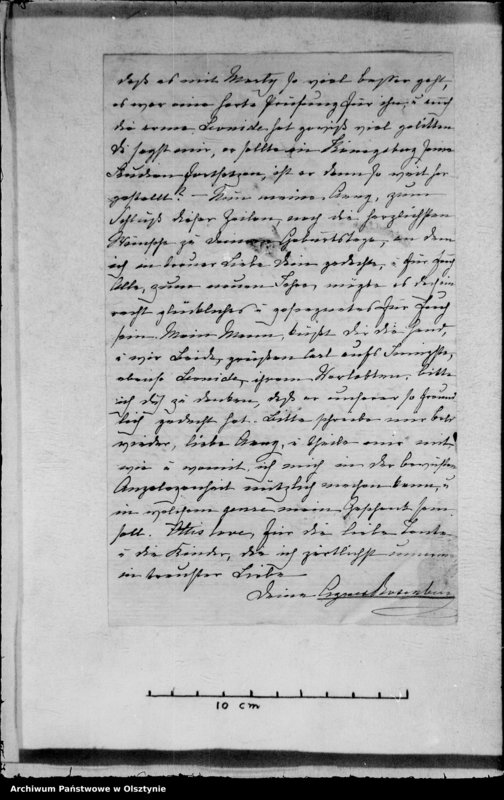 daß es mit Marly so viel besser geht,
es war eine harte Prüfung für ihn, u auch
die arme Leonide hat gewiß viel gelitten
Du sagst mir, er sollte in Königsberg seine
Studien fortsetzen, ist er denn so weit her
gestellt? – Nun meine, zum
Schluß dieser Zeilen, noch die herzlichsten
Wünsche zu Deinem Geburtstage, an dem
ich in treuer Liebe Dein gedachte, u für Euch
Alle, zum neuen Jahre, mögte es doch ein
recht glückliches u gesegnetes für Euch
sein. Mein Mann, küßt Dir die Hand,
u wir Beide, grüßen Carl aufs Innigste,
ebenso Leonide, ihrem Verlobten, bitte
ich Dich zu danken, daß er unserer so freund
lich gedacht hat. Bitte schreibe mir bald
wieder, liebe, u theile mir mit
wie u womit ich mich in der bewußten
Angelegenheit nützlich machen kann, u
in welchem genre mein Geschenk sein
soll. Mis love, für die liebe Tante
u die Kinder, die ich zärtlichst umarme
in treuster Liebe
Deine Agnes
10 cm
Archiwum Państwowe w Olsztynie